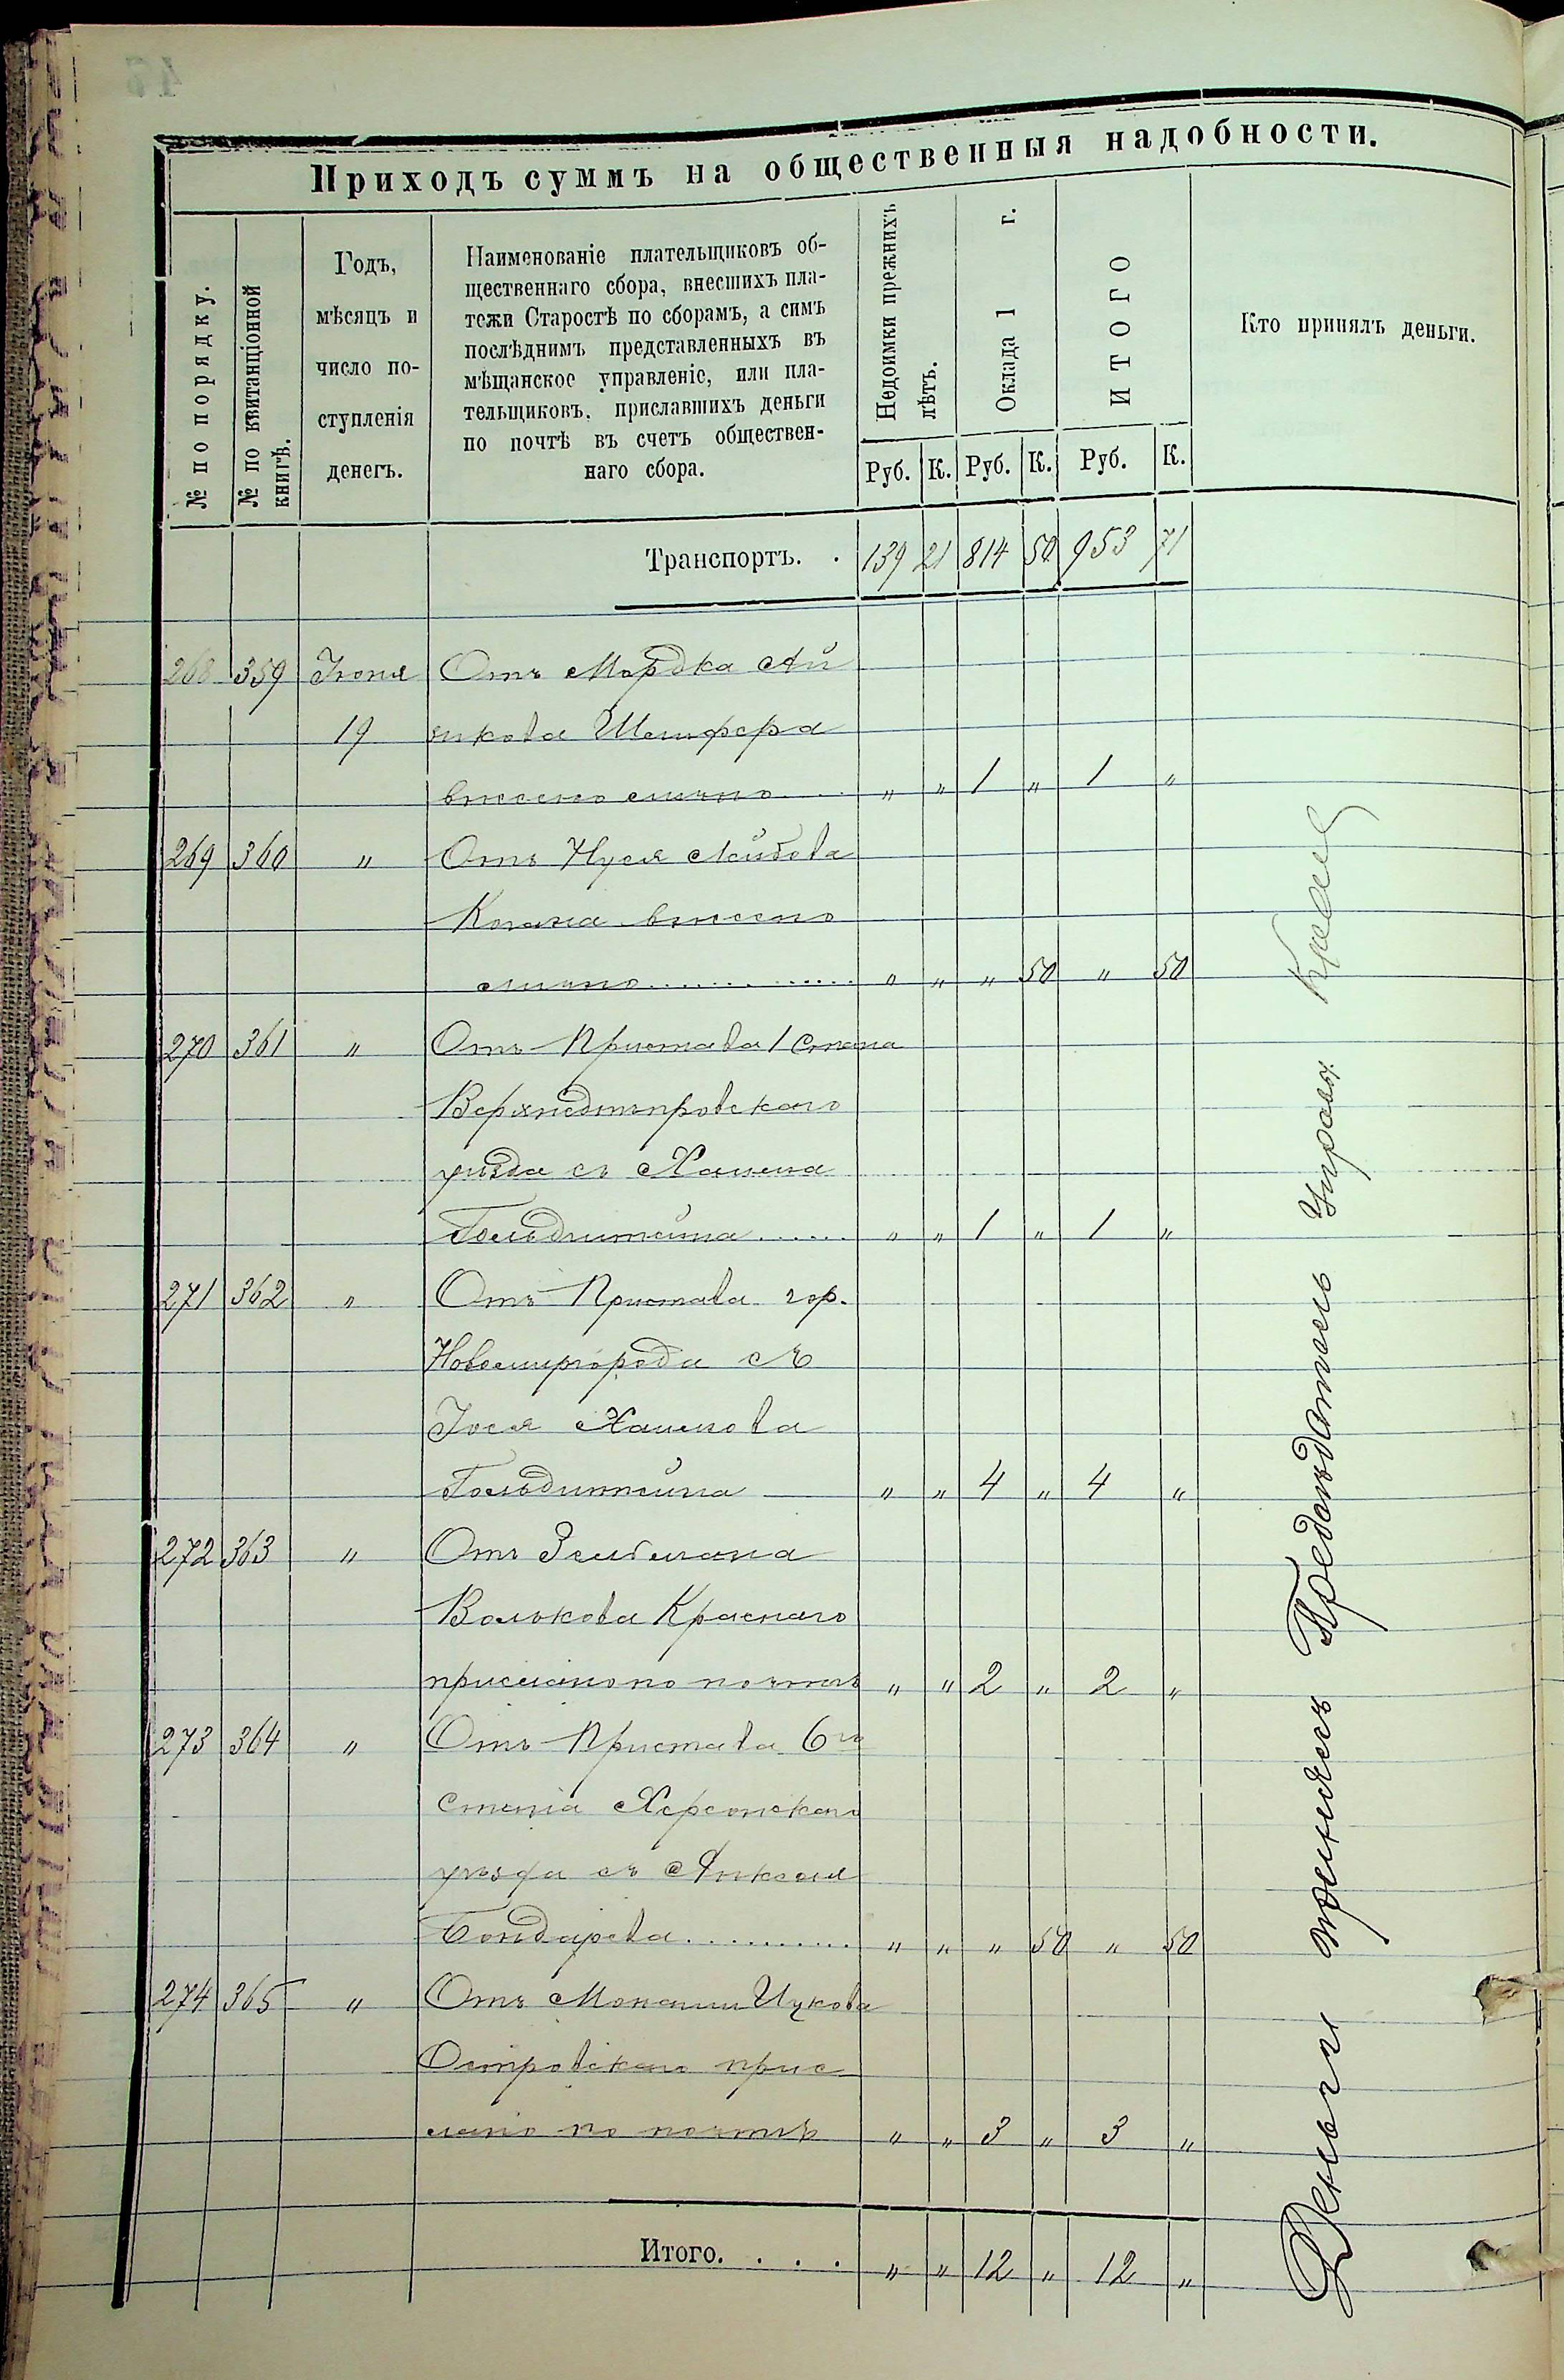 Приходъ суммъ на общественныя надобности.
№ по порядку.
№ по квитанціонной
книгѣ.
Годъ,
мѣсяцъ и
число по-
ступленія
денегъ.
Наименованіе плательщиковъ об-
щественнаго сбора, внесшихъ пла-
тежи Старостѣ по сборамъ, а симъ
послѣднимъ представленныхъ въ
мѣщанское управленіе, или пла-
тельщиковъ, приславшихъ деньги
по почтѣ въ счетъ обществен-
наго сбора.
Недоимки прежнихъ
лѣтъ.
Оклада 1 г.
ИТОГО
Кто принялъ деньги.
Руб. К. Руб. К. Руб. К.
Транспортъ. . 139 21 814 50 953 71
268 359 Іюня Отъ Мордка Ай
19 зикова
внесено лично " " 1 " 1 "
269 360 " Отъ Нуся Лейбова
Когана внесено
лично " " " 50 " 50
270 361 " Отъ Пристава 1 Стана
Верхнеднѣпровскаго
уѣзда съ Хаима
Гольдштейна " " 1 " 1 "
271 362 " Отъ Пристава гор.
Новомиргорода съ
Іося Хаимова
Гольдштейна " " 4 " 4 "
272 363 " Отъ Зельмана
Волькова Краснаго
прислано по почтѣ " " 2 " 2 "
273 364 " Отъ Пристава 6го
Стана Херсонскаго
уѣзда съ
Бондарева " " " 50 " 50
274 365 " Отъ Монаши Ицкова
Островскаго прис
лано по почтѣ " " 3 " 3 "
Итого. . . . " " 12 " 12 "
Деньги принялъ Предсѣдатель Управы